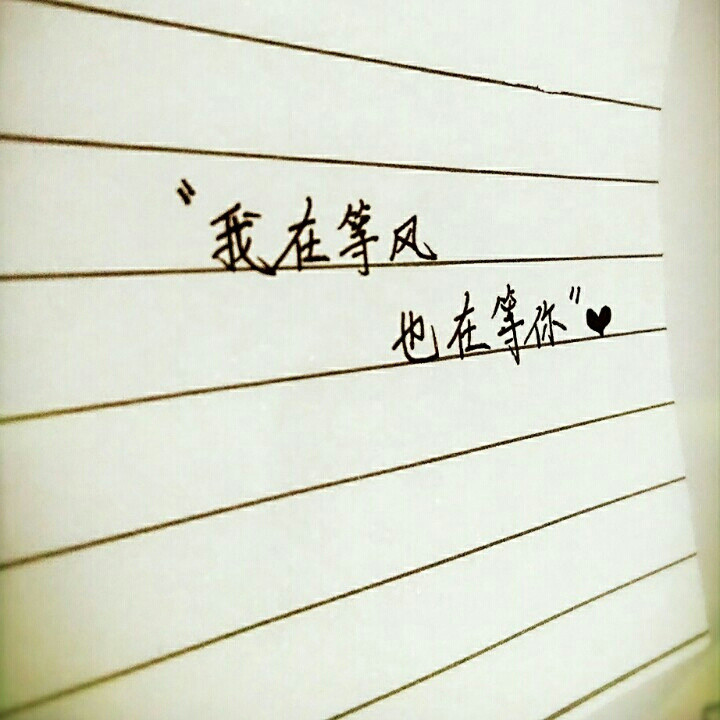 "我在等风
也在等你"♥